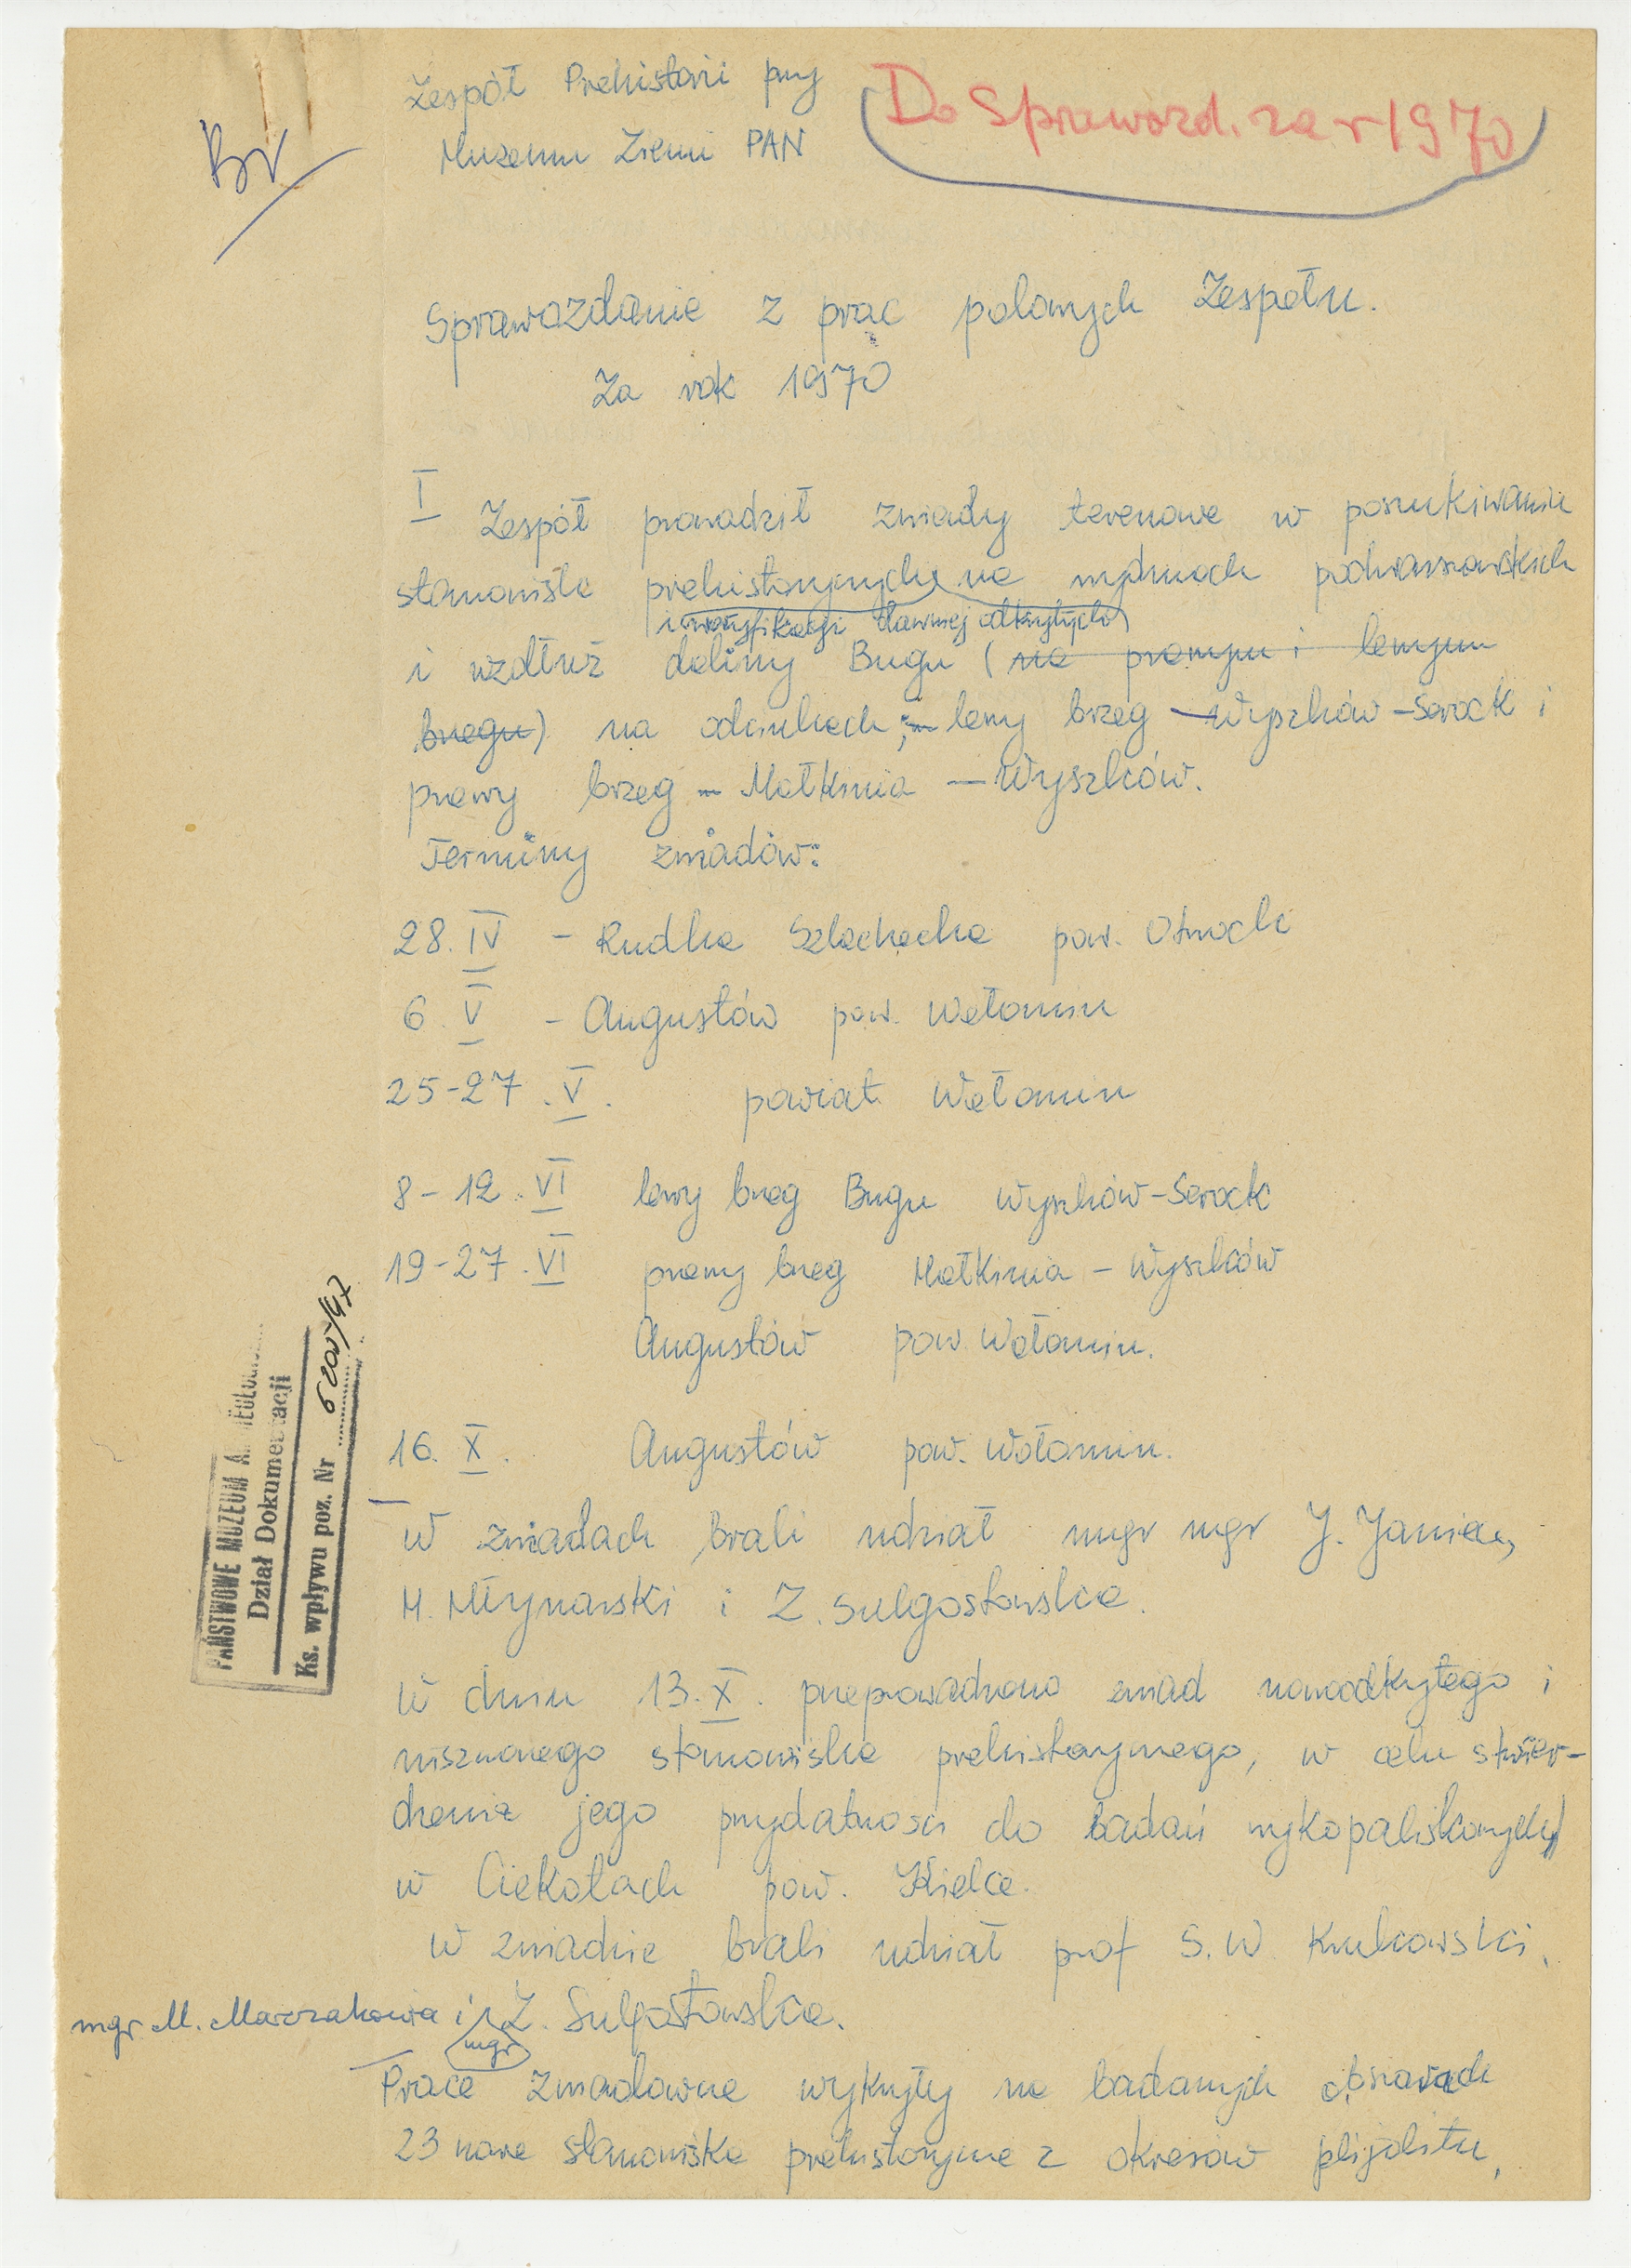 Zespół Prehistorii przy
Muzeum Ziemi PAN
Do Sprawozd. za r 1970
Br
Sprawozdanie z prac polowych Zespołu.
Za rok 1970
I Zespół prowadził zwiady terenowe w poszukiwaniu
stanowisk prehistorycznych na wydmach podwarszawskich
i weryfikacji dawniej odkrytych
i wzdłuż doliny Bugu (na prawym i lewym
brzegu) na odcinkach; lewy brzeg – Wyszków – Serock i
prawy brzeg – Małkinia – Wyszków.
Terminy zwiadów:
28. IV – Rudka Szlachecka pow. Otwock
6. V – Augustów pow. Wołomin
25-27. V. powiat Wołomin
8-12. VI lewy brzeg Bugu Wyszków-Serock
19-27. VI prawy brzeg Małkinia – Wyszków
Augustów pow Wołomin.
16. X. Augustów pow. Wołomin.
W zwiadach brali udział mgr mgr J. Janiec,
H. Młynarski i Z. Sulgostowska.
W dniu 13. X. przeprowadzono zwiad nowoodkrytego i
niszczonego stanowiska prehistorycznego, w celu stwier-
dzenia jego przydatności do badań wykopaliskowych
w Ciekotach pow. Kielce.
W zwiadzie brali udział prof S. W Krukowski,
mgr. M. Marczakowa i Z. Sulgostowska.
mgr
Prace zwiadowcze wykryły na badanych obszarach
23 nowe stanowiska prehistoryczne z okresów plijolitu,
PAŃSTWOWE MUZEUM A
Dział Dokumentacji
Ks. wpływu poz. Nr